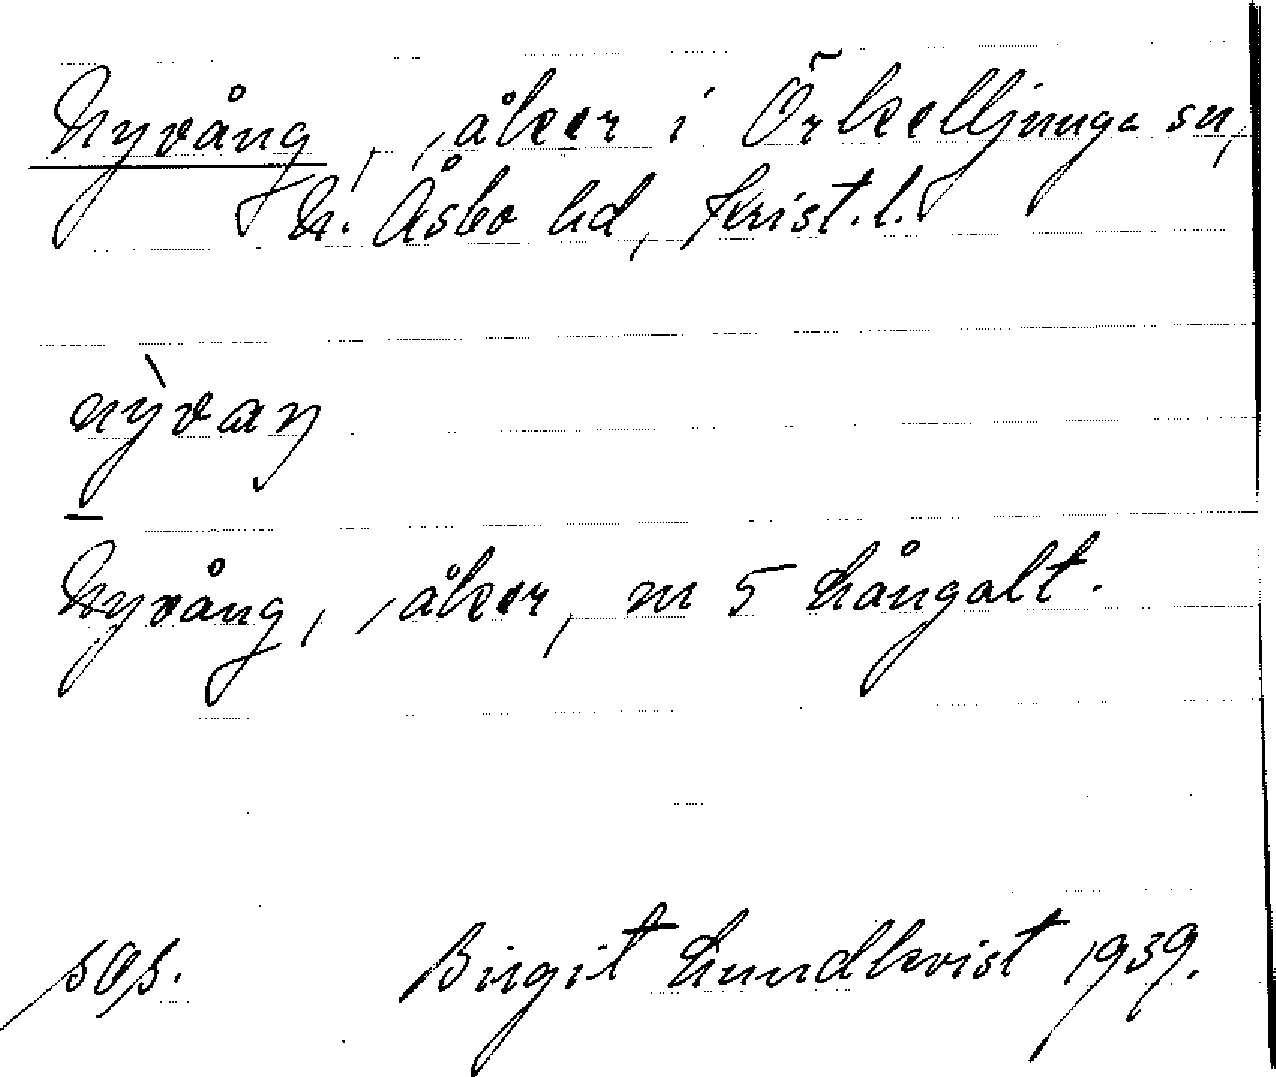 Nyvång, ,åker i Örkelljunga sn,
N. Åsbo hd, Krist.l.
nỳvaŋ
Nyvång, ,åker, m 5 Långalt.
sas. Birgit Lundkvist 1939.